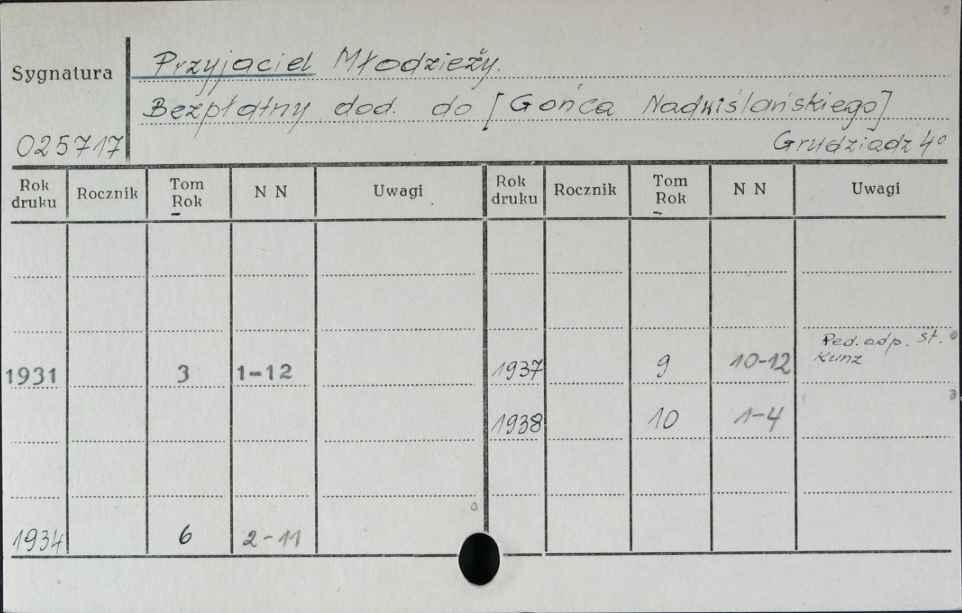 Sygnatura
Przyjaciel Młodzieży.
Bezpłatny dod. do [Gońca Nadwiślańskiego]
025717 Grudziądz 4º
Rok druku Rocznik Tom Rok N N Uwagi Rok druku Rocznik Tom Rok N N Uwagi
Red. odp. St. Kunz
1931 3 1-12 1937 9 10-12
1938 10 1-4
1934 6 2-11